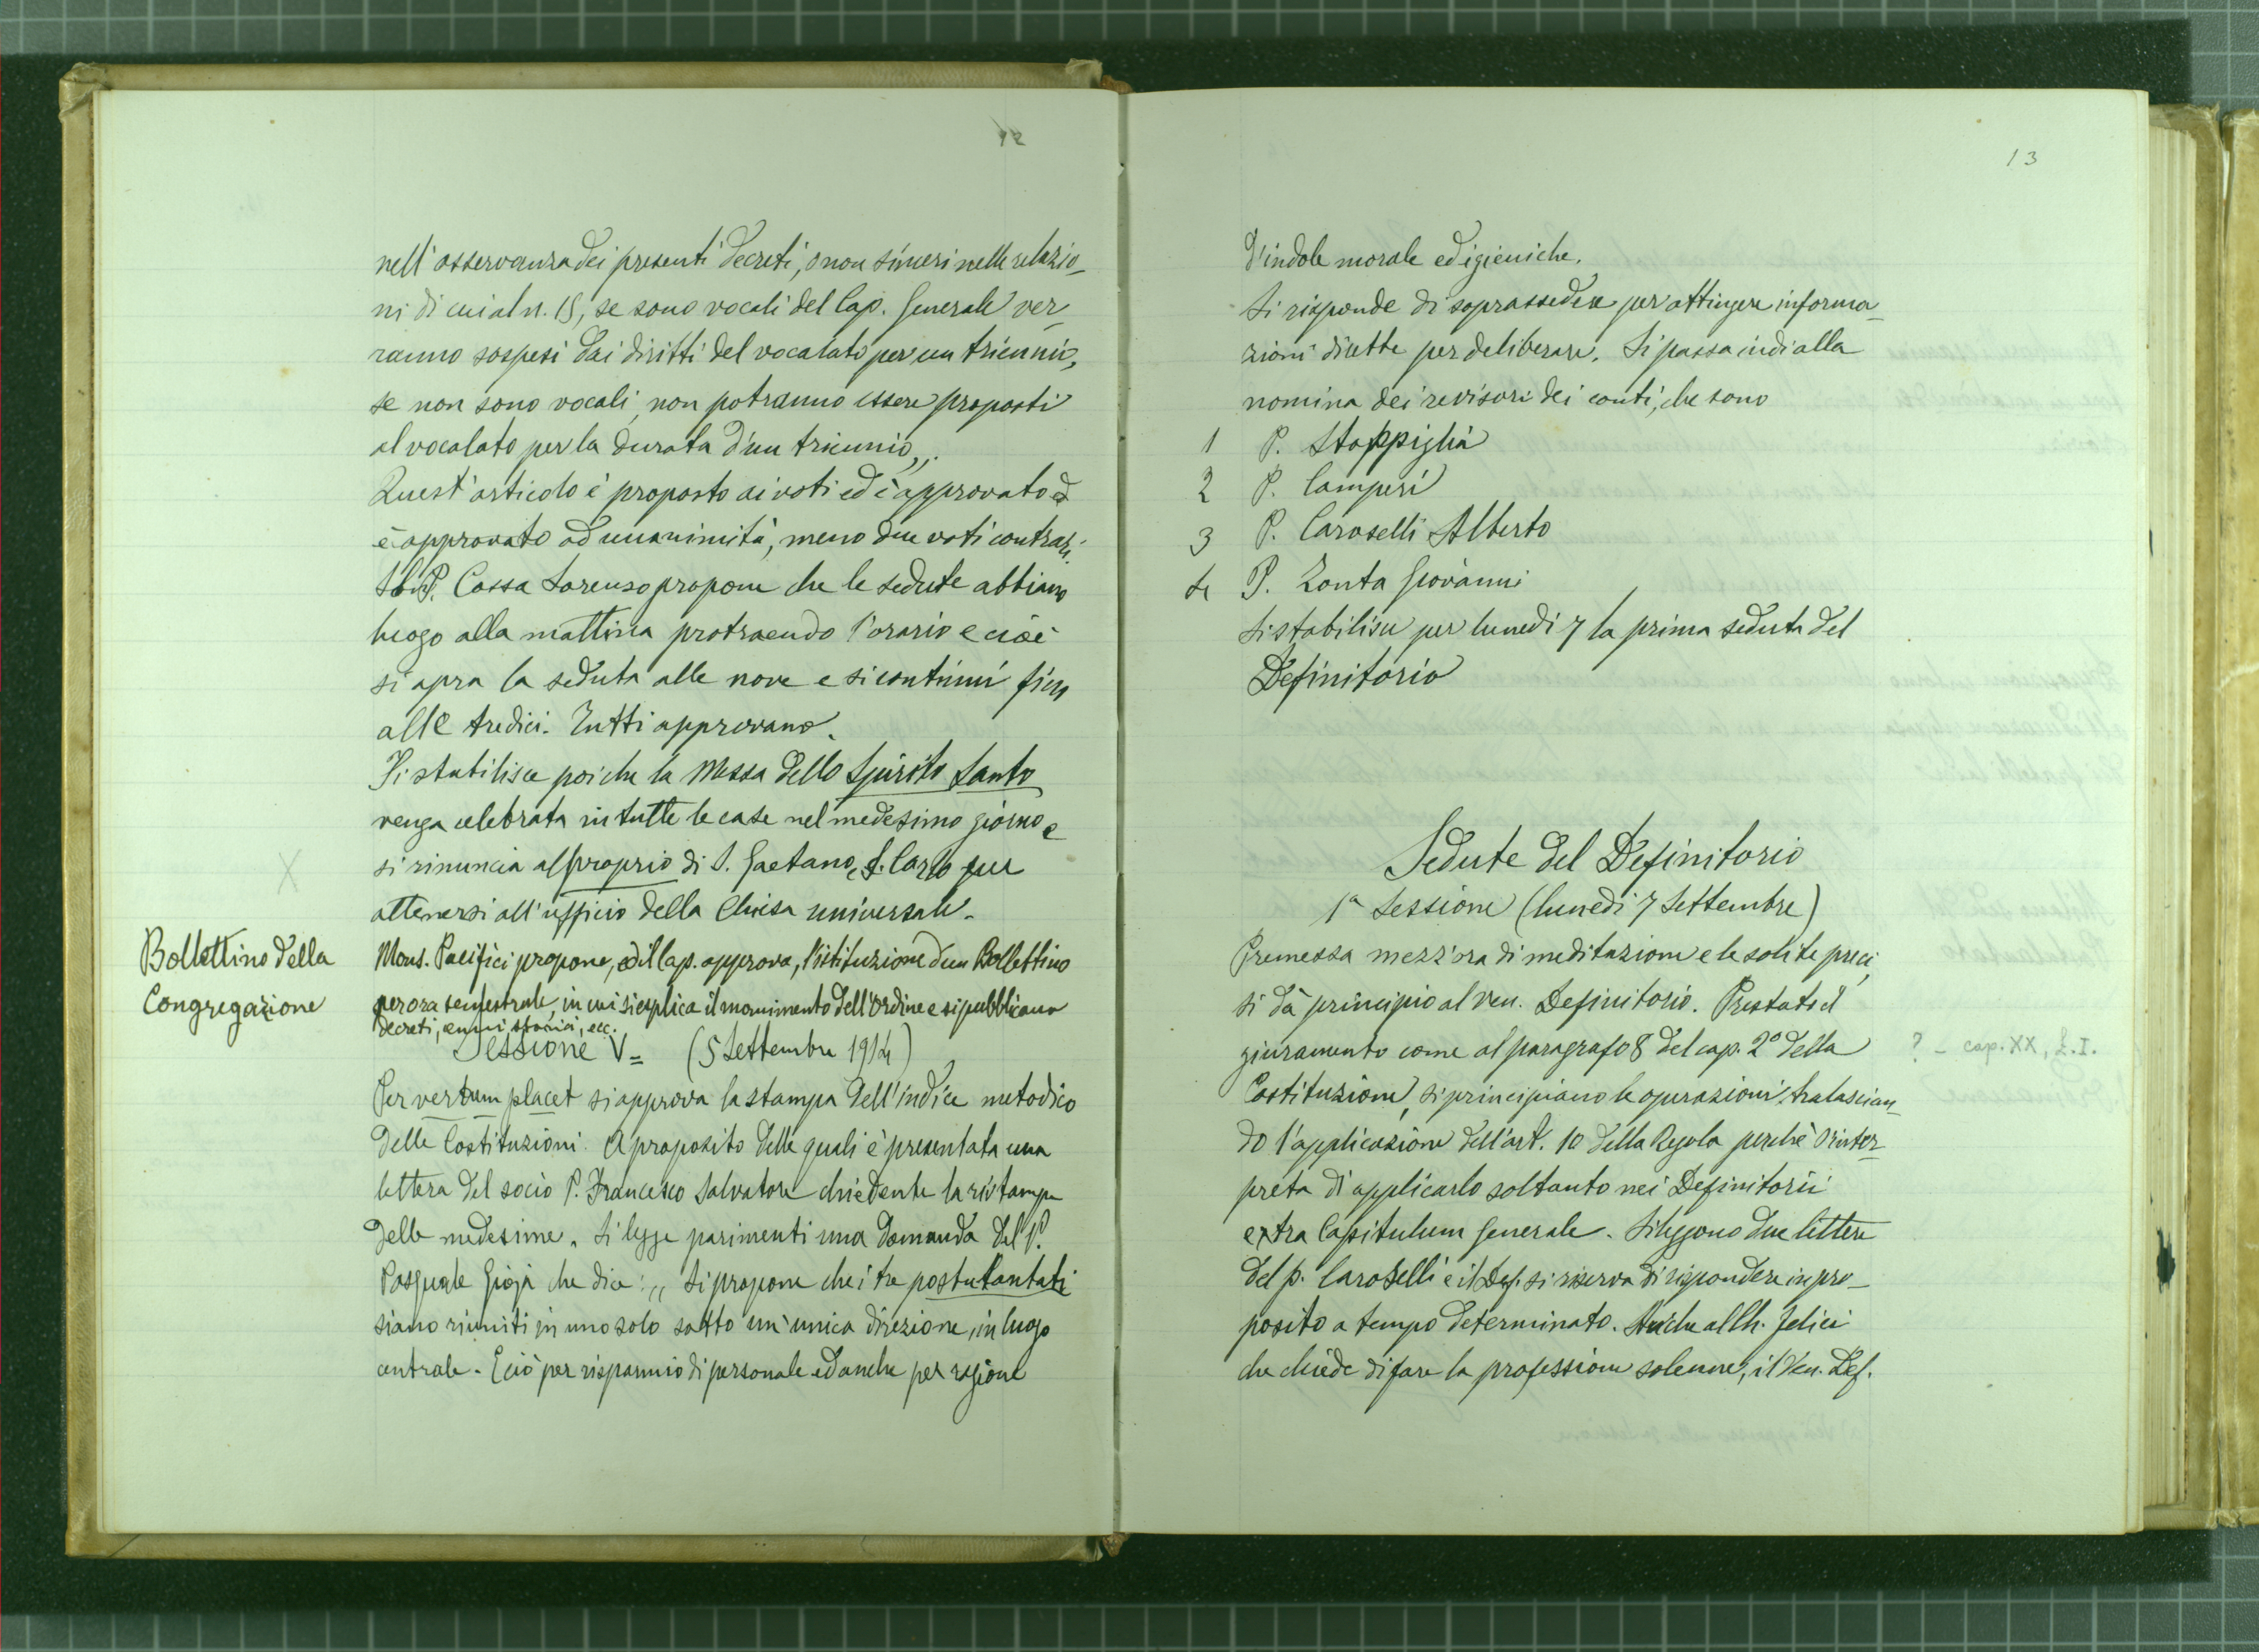 12
nell'osservanza dei presenti decreti, o non sinceri nelle relazio-
ni di cui al n. 15, se sono vocali del Cap. Generale ver-
ranno sospesi dai diritti del vocalato per un triennio,
se non sono vocali, non potranno essere proposti
al vocalato per la durata d'un triennio,,.
Quest'articolo è proposto ai voti ed è approvato ed
è approvato ad unanimità, meno due voti contrari.
P. Cossa Lorenzo propone che le sedute abbiano
luogo alla mattina protraendo l'orario e cioè
si apra la seduta alle nove e si continui fino
alle tredici. Tutti approvano.
Si stabilisce poi che la Messa dello Spirito Santo
venga celebrata in tutte le case nel medesimo giorno e
si rinuncia al proprio di S. Gaetano, S. Carlo per
attenersi all'ufficio della Chiesa universale.
Bollettino della
Congregazione
Mons. Pacifici propone, ed il Cap. approva, l'istituzione d'un Bollettino
per ora semestrale, in cui si esplica il movimento dell'Ordine e si pubblicano
decreti, cenni storici, ecc.
Sessione V = (5 Settembre 1914)
Per verbum placet si approva la stampa dell'indice metodico
delle Costituzioni. A proposito delle quali è presentata una
lettera del socio P. Francesco Salvatore chiedente la ristampa
delle medesime. Si legge parimenti una domanda del P.
Pasquale Gioja che dice: ,, Si propone che i tre postulantati
siano riuniti in uno solo sotto un'unica direzione, in luogo
centrale. E ciò per risparmio di personale ed anche per ragione
13
d'indole morale ed igieniche.
Si risponde di soprassedere per attingere informa-
zioni dirette per deliberare. Si passa indi alla
nomina dei revisori dei conti, che sono
1 P. Stoppiglia
2 P. Camperi
3 P. Caroselli Alberto
4 P. Zonta Giovanni
Si stabilisce per lunedì 7 la prima seduta del
Definitorio
Sedute del Definitorio
1ª Sessione (lunedì 7 Settembre)
Premessa mezz'ora di meditazione e le solite preci,
si dà principio al Ven. Definitorio. Prestato il
giuramento come al paragrafo 8 del cap. 2º della
? - cap. XX, L.I.
Costituzione, si principiano le operazioni, tralascian-
do l'applicazione dell'art. 10 della Regola perchè s'inter-
preta di applicarlo soltanto nei Definitorii
extra Capitulum Generale. Si leggono due lettere
del p. Caroselli e il Def. si riserva di rispondere in pro-
posito a tempo determinato. Anche al Ch. Felici
che chiede di fare la professione solenne, il Ven. Def.